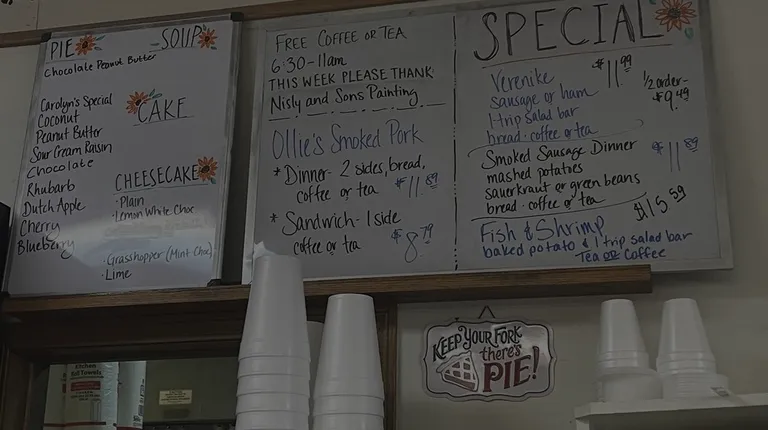 PIE
SOUP
Chocolate Peanut Butter
Carolyn's Special
Coconut
Peanut Butter
Sour Cream Raisin
Chocolate
Rhubarb
Dutch Apple
Cherry
Blueberry
CAKE
CHEESECAKE
· Plain
· Lemon White Choc
· Grasshopper (Mint Choc)
· Lime
FREE COFFEE or TEA
6:30-11am
THIS WEEK PLEASE THANK
Nisly and Sons Painting
Ollie's Smoked Pork
* Dinner- 2 sides, bread,
coffee or tea $11.89
* Sandwich- 1 side
coffee or tea $8.79
SPECIAL
Verenike $11.99
sausage or ham 1/2 order-
1-trip salad bar $9.49
bread - coffee or tea
Smoked Sausage Dinner $11.89
mashed potatoes
sauerkraut or green beans
bread - coffee or tea
$15.59
Fish & Shrimp
baked potato & 1 trip salad bar
Tea or Coffee
KEEP YOUR FORK
there's
PIE!
Kitchen
Roll Towels